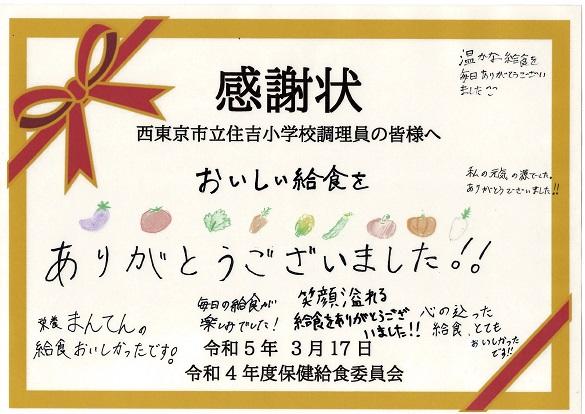 感謝状
温かな給食を
毎日ありがとうござい
ました
西東京市立住吉小学校調理員の皆様へ
おいしい給食を
私の元気の源でした。
ありがとうございました!!
ありがとうございました!!
栄養まんてんの
給食おいしかったです!
毎日の給食が
楽しみでした!
笑顔溢れる
給食をありがとうござ
いました!!
心の込った
給食、とても
おいしかった
です!!
令和5年 3月17日
令和4年度保健給食委員会